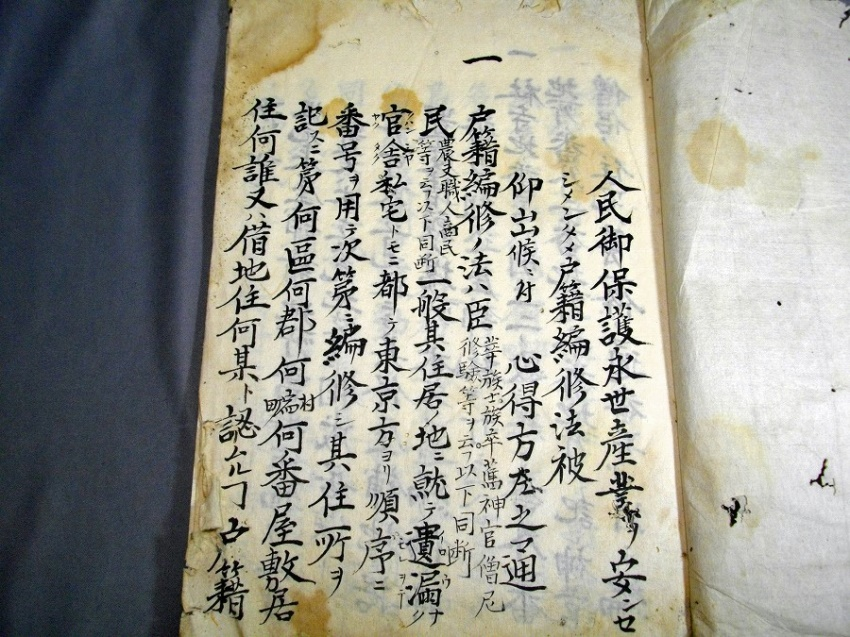 人民御保護永世産業ヲ安ンセ
シメンタメ戸籍編修法被
仰出候ニ付 心得方左之通
一
戸籍編修ノ法ハ臣
華族士族卒舊神官僧尼
修験等ヲ云フ以下同断
民
農夫職人商民
等ヲ云フ以下同断
一般其住居ノ地ニ就テ遺漏ナク
官舎私宅トモニ都テ東京方ヨリ順序ニ
番号ヲ用テ次第ニ編修シ其住所ヲ
記スニ第何區何郡何村何番屋敷居
住何誰又ハ借地住何某ト認
籍